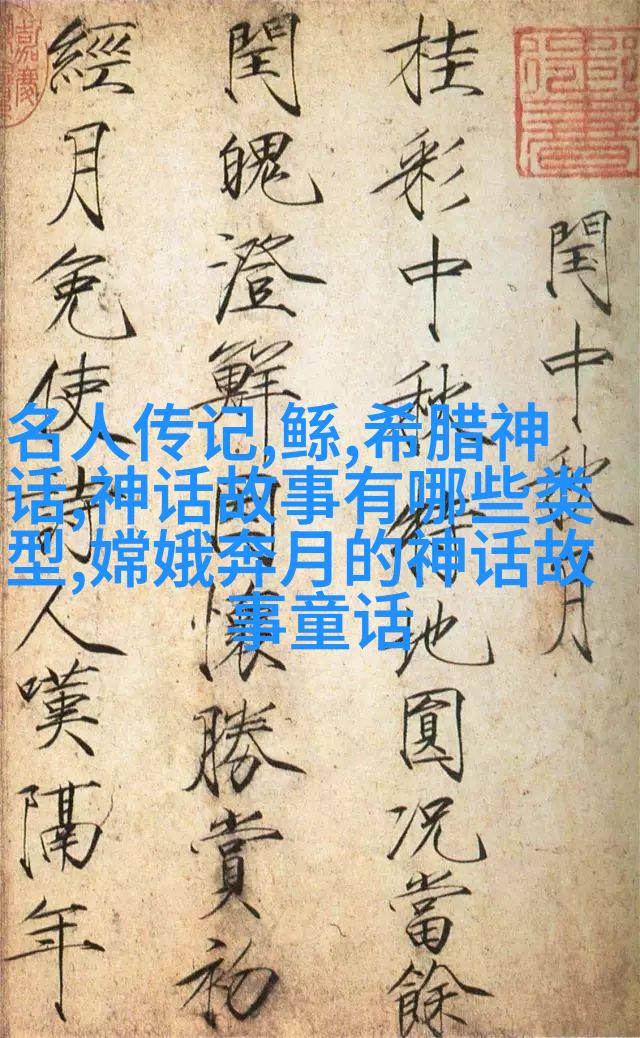 閏中秋月
桂彩中秋特地圓况當餘
閏魄澄鮮因懷勝賞初
經月免使詩人嘆隔年
名人传记,鲧,希腊神
话,神话故事有哪些类
型,嫦娥奔月的神话故
事童话